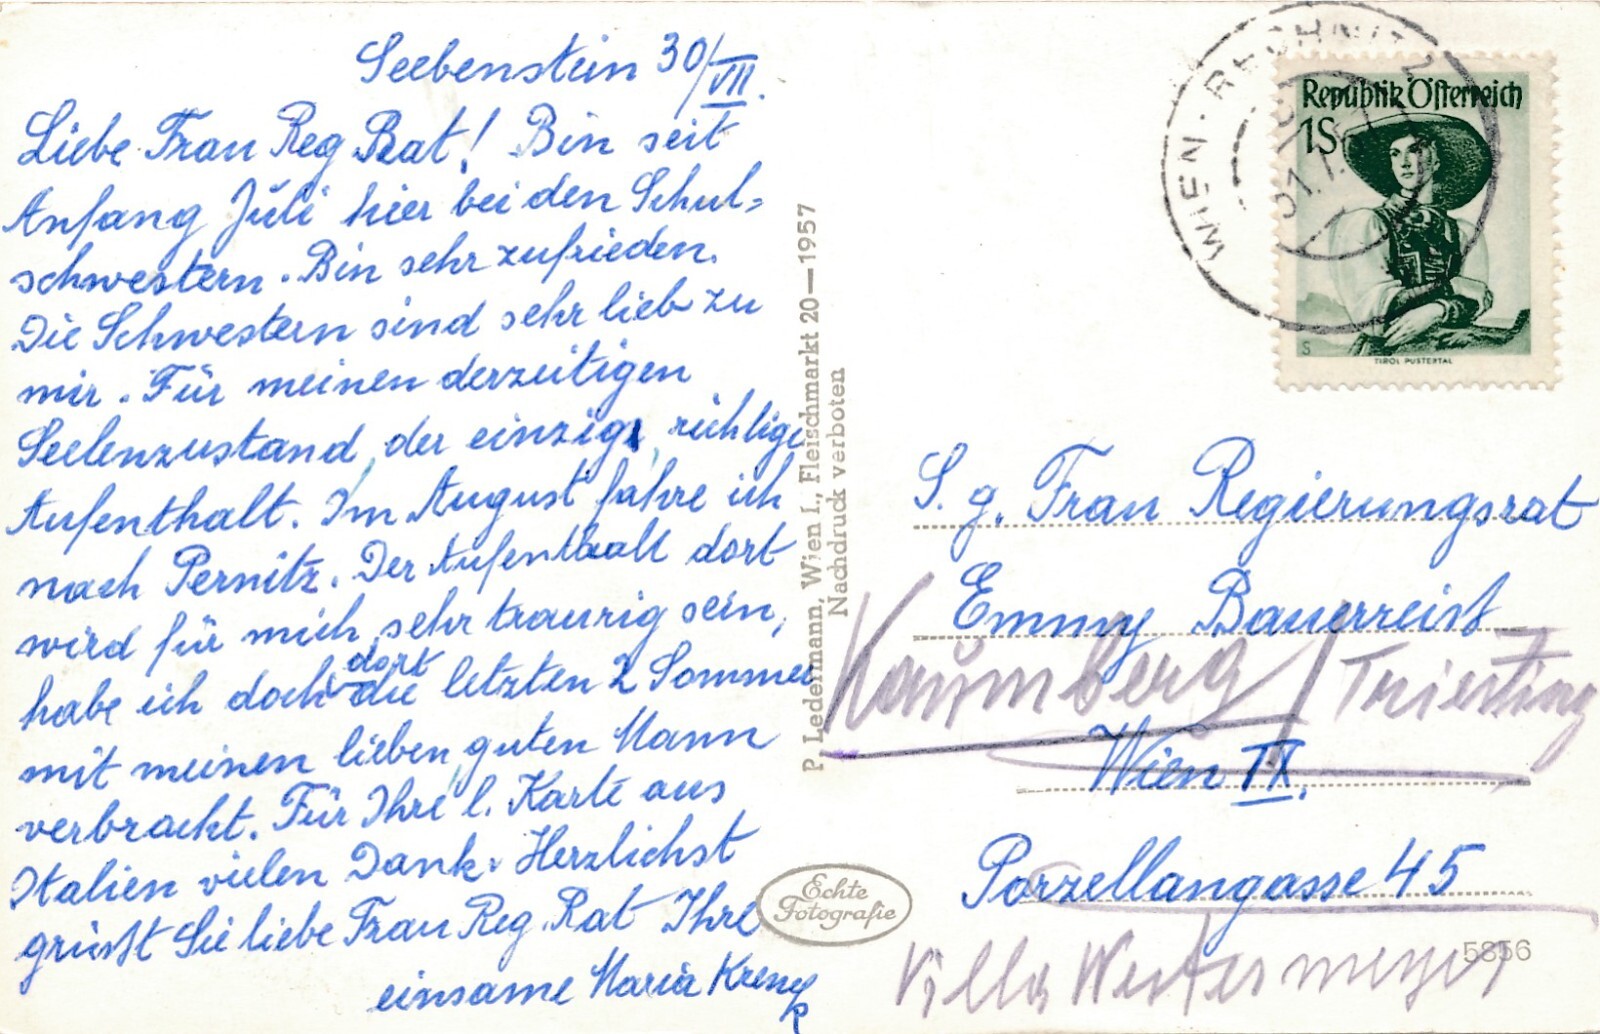 Seebenstein 30/VII.
Liebe Frau Reg Rat! Bin seit
Anfang Juli hier bei den Schul-
schwestern. Bin sehr zufrieden.
Die Schwestern sind sehr lieb zu
mir. Für meinen derzeitigen
Seelenzustand, der einzig, richtige
Aufenthalt. Im August fahre ich
nach Pernitz. Der Aufenthalt dort
wird für mich sehr traurig sein,
habe ich doch dort die letzten 2 Sommer
mit meinen lieben, guten Mann
verbracht. Für Ihre l. Karte aus
Italien vielen Dank. Herzlichst
grüßt Sie liebe Frau Reg Rat Ihre
einsame Maria
P. Ledermann, Wien I., Fleischmarkt 20—1957
Nachdruck verboten
Echte
Fotografie
WIEN
Republik Österreich
1S
S
TIROL PUSTERTAL
S. g. Frau Regierungsrat
Emmy Bauerreist
Kaumberg / Triesting
Wien IX.
Porzellangasse 45
5856
Villa Westermeyer